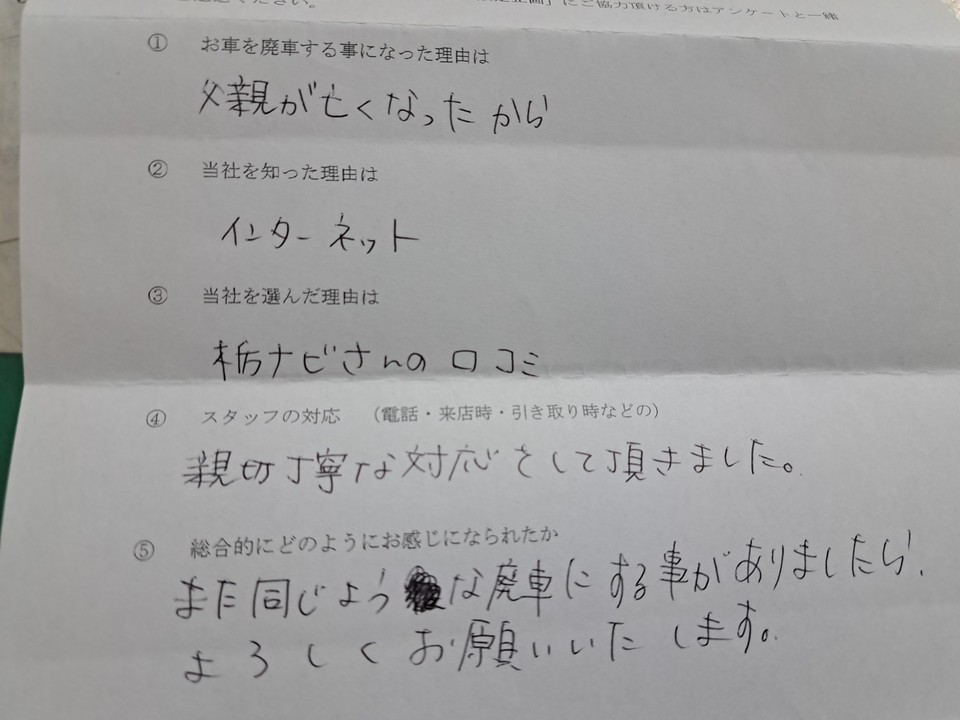 にご協力頂ける方はアンケートと一緒
ください。
① お車を廃車する事になった理由は
父親が亡くなったから
② 当社を知った理由は
インターネット
③ 当社を選んだ理由は
栃ナビさんの口コミ
④ スタッフの対応 （電話・来店時・引き取り時などの）
親切丁寧な対応をして頂きました。
⑤ 総合的にどのようにお感じになられたか
また同じような廃車にする事がありましたら、
よろしくお願いいたします。